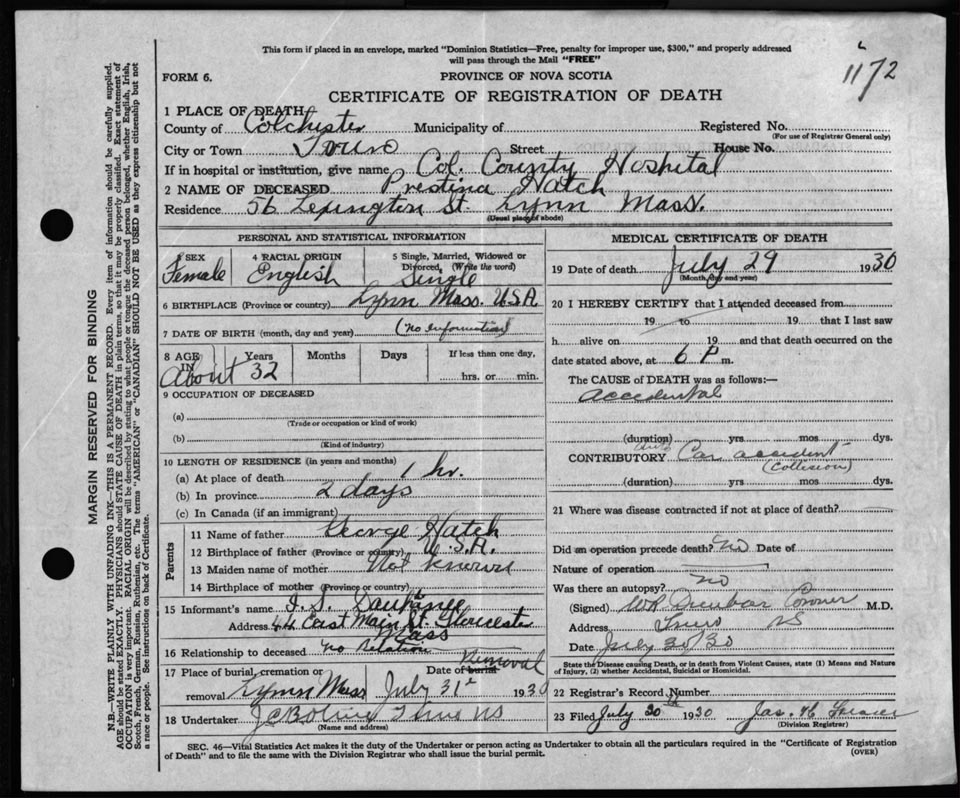 This form if placed in an envelope, marked "Dominion Statistics—Free, penalty for improper use, $300," and properly addressed
will pass through the Mail "FREE"
1172
FORM 6.
PROVINCE OF NOVA SCOTIA
CERTIFICATE OF REGISTRATION OF DEATH
1 PLACE OF DEATH
County of Colchester Municipality of Registered No.
(For use of Registrar General only)
City or Town Truro Street House No.
If in hospital or institution, give name Col. County Hospital
2 NAME OF DECEASED Prestina Hatch
Residence 56 Lexington St. Lynn Mass.
(Usual place of abode)
PERSONAL AND STATISTICAL INFORMATION
3 SEX 4 RACIAL ORIGIN 5 Single, Married, Widowed or
Divorced, (Write the word)
Female English Single
6 BIRTHPLACE (Province or country) Lynn Mass. U.S.A
7 DATE OF BIRTH (month, day and year) (no information)
8 AGE IN Years Months Days If less than one day,
About 32 hrs. or min.
9 OCCUPATION OF DECEASED
(a)
(Trade or occupation or kind of work)
(b)
(Kind of industry)
10 LENGTH OF RESIDENCE (in years and months)
(a) At place of death 1 hr.
(b) In province 2 days
(c) In Canada (if an immigrant)
Parents
11 Name of father George Hatch
12 Birthplace of father (Province or country) U.S.A.
13 Maiden name of mother Not known
14 Birthplace of mother (Province or country)
15 Informant's name I. S.
Address 44 East Main St. Gloucester
Mass
16 Relationship to deceased no relation
17 Place of burial, cremation or Date of burial Removal
removal Lynn Mass July 31st 1930
18 Undertaker Truro NS
(Name and address)
MEDICAL CERTIFICATE OF DEATH
19 Date of death July 29 1930
(Month, day and year)
20 I HEREBY CERTIFY that I attended deceased from
19 to 19 that I last saw
h alive on 19 and that death occurred on the
date stated above, at 6 P m.
The CAUSE of DEATH was as follows:—
accidental
(duration) yrs mos dys.
CONTRIBUTORY auto Car accident
(Collision)
(duration) yrs mos dys.
21 Where was disease contracted if not at place of death?
Did an operation precede death? no Date of
Nature of operation
Was there an autopsy? no
(Signed) WR Dunbar Coroner M.D.
Address Truro NS
Date July 30/30
State the Disease causing Death, or in death from Violent Causes, state (1) Means and Nature
of Injury, (2) whether Accidental, Suicidal or Homicidal.
22 Registrar's Record Number
23 Filed July 30th 1930 Jas. H.
(Division Registrar)
SEC. 46—Vital Statistics Act makes it the duty of the Undertaker or person acting as Undertaker to obtain all the particulars required in the "Certificate of Registration
of Death" and to file the same with the Division Registrar who shall issue the burial permit.
(OVER)
MARGIN RESERVED FOR BINDING
N.B.—WRITE PLAINLY WITH UNFADING INK—THIS IS A PERMANENT RECORD. Every item of information should be carefully supplied.
AGE should be stated EXACTLY. PHYSICIANS should STATE CAUSE OF DEATH in plain terms, so that it may be properly classified. Exact statement of
OCCUPATION is very important. RACIAL ORIGIN will be described by stating to what people or tongue the deceased person belonged, whether English, Irish,
Scotch, French, German, Russian, Ruthenian, etc. The terms "AMERICAN" or "CANADIAN" SHOULD NOT BE USED as they express citizenship but not
a race or people. See instructions on back of Certificate.